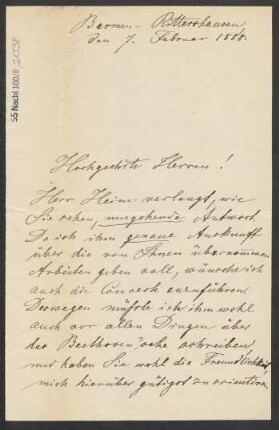 Barmen-Rittershausen
den 7. Februar 1888.
Hochgeehrte Herren!
Herr Heim verlangt, wie
Sie sehen, umgehende Antwort.
Da ich ihm genaue Auskunft
über die von Ihnen übernommenen
Arbeiten geben soll, wünsche ich
auch die Concerte anzuführen.
Deswegen müßte ich ihm wohl
auch vor allen Dingen über
das Beethoven'sche schreiben,
und haben Sie wohl die Freundlichkeit,
mich hierüber gütigst zu orientiren
55 Nachl 100/B,